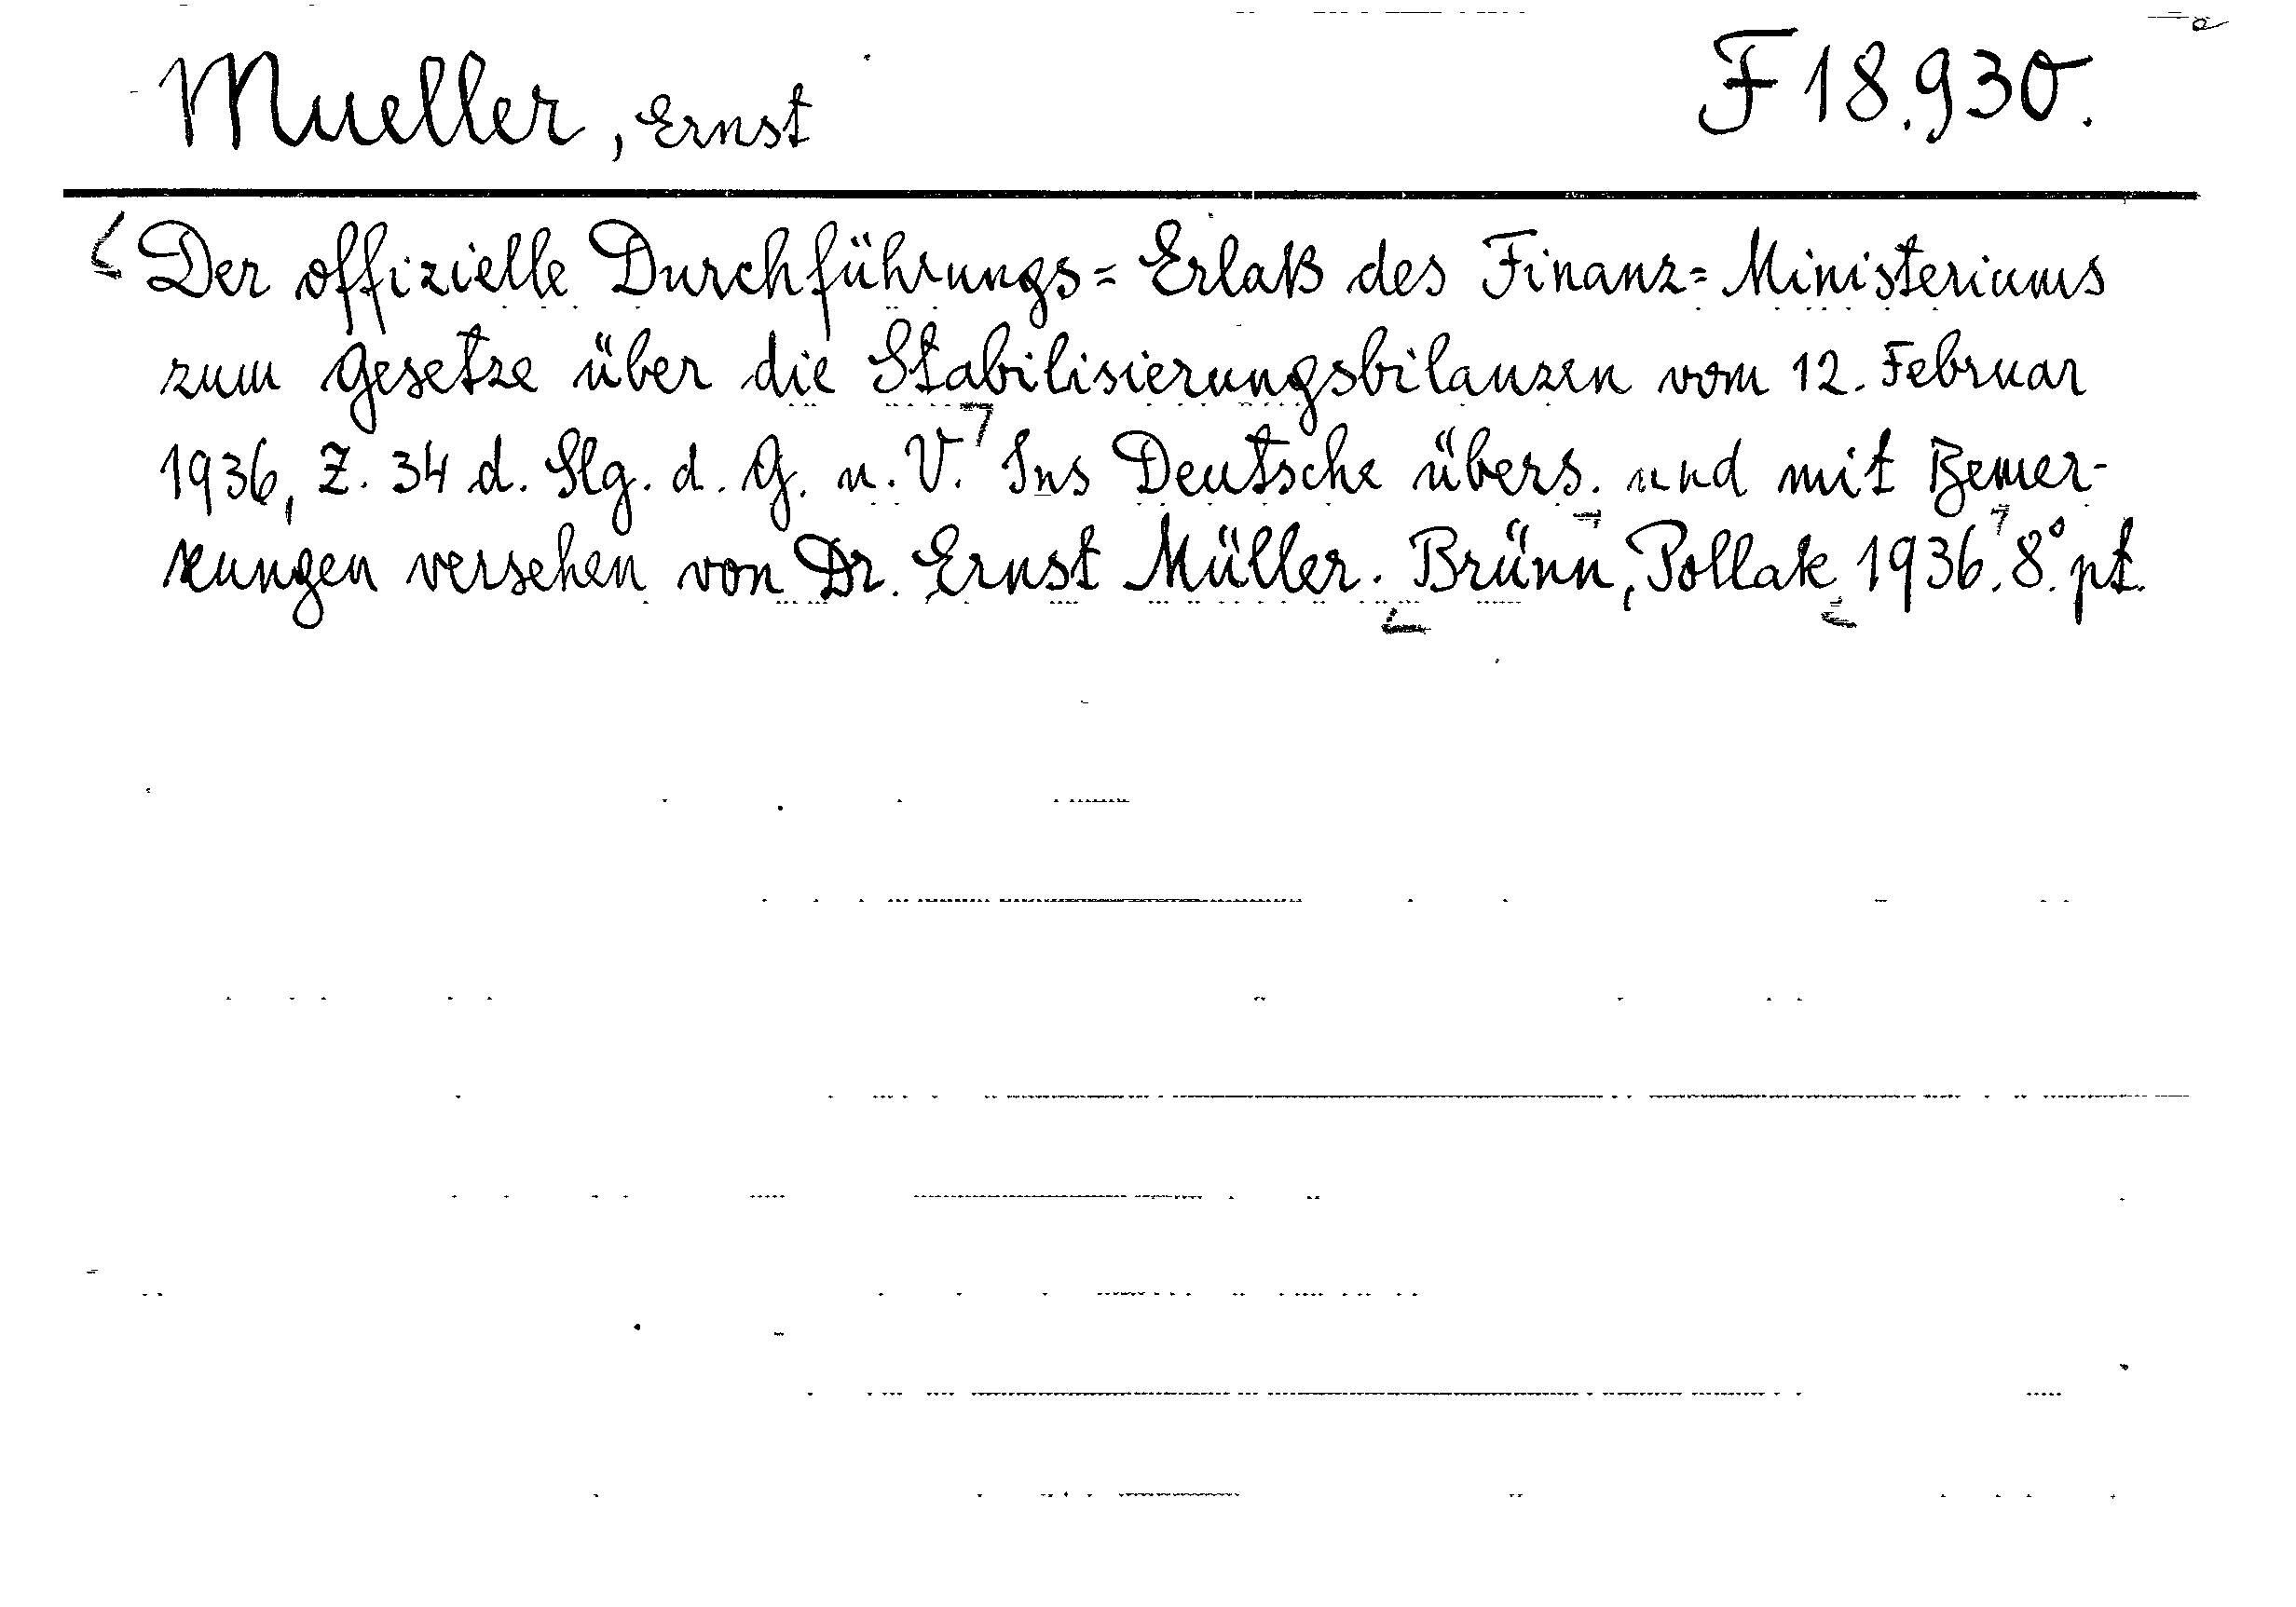 Mueller, Ernst F 18.930.
Der offizielle Durchführungs=Erlaß des Finanz=Ministeriums
zum Gesetze über die Stabilisierungsbilanzen vom 12. Februar
1936, Z. 34 d. Slg. d. G. u. V. Ins Deutsche übers. und mit Bemer-
kungen versehen von Dr. Ernst Müller. Brünn, Pollak 1936. 8°. pt.